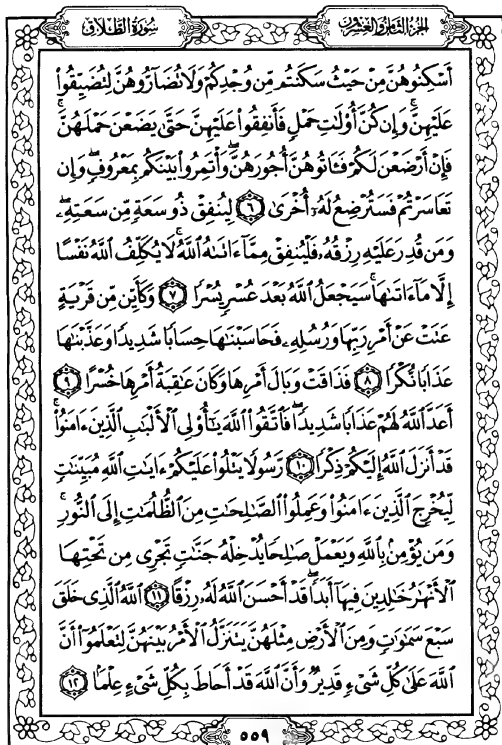 الجزء الثامن والعشرون
سورة الطلاق
أَسْكِنُوهُنَّ مِنْ حَيْثُ سَكَنتُم مِّن وُجْدِكُمْ وَلَا تُضَآرُّوهُنَّ لِتُضَيِّقُوا۟
عَلَيْهِنَّ ۚ وَإِن كُنَّ أُو۟لَٰتِ حَمْلٍ فَأَنفِقُوا۟ عَلَيْهِنَّ حَتَّىٰ يَضَعْنَ حَمْلَهُنَّ ۚ
فَإِنْ أَرْضَعْنَ لَكُمْ فَـَٔاتُوهُنَّ أُجُورَهُنَّ ۖ وَأْتَمِرُوا۟ بَيْنَكُم بِمَعْرُوفٍ ۖ وَإِن
تَعَاسَرْتُمْ فَسَتُرْضِعُ لَهُۥٓ أُخْرَىٰ ٦ لِيُنفِقْ ذُو سَعَةٍ مِّن سَعَتِهِۦ ۖ
وَمَن قُدِرَ عَلَيْهِ رِزْقُهُۥ فَلْيُنفِقْ مِمَّآ ءَاتَىٰهُ ٱللَّهُ ۚ لَا يُكَلِّفُ ٱللَّهُ نَفْسًا
إِلَّا مَآ ءَاتَىٰهَا ۚ سَيَجْعَلُ ٱللَّهُ بَعْدَ عُسْرٍ يُسْرًا ٧ وَكَأَيِّن مِّن قَرْيَةٍ
عَتَتْ عَنْ أَمْرِ رَبِّهَا وَرُسُلِهِۦ فَحَاسَبْنَٰهَا حِسَابًا شَدِيدًا وَعَذَّبْنَٰهَا
عَذَابًا نُّكْرًا ٨ فَذَاقَتْ وَبَالَ أَمْرِهَا وَكَانَ عَٰقِبَةُ أَمْرِهَا خُسْرًا ٩
أَعَدَّ ٱللَّهُ لَهُمْ عَذَابًا شَدِيدًا ۖ فَٱتَّقُوا۟ ٱللَّهَ يَٰٓأُو۟لِى ٱلْأَلْبَٰبِ ٱلَّذِينَ ءَامَنُوا۟ ۚ
قَدْ أَنزَلَ ٱللَّهُ إِلَيْكُمْ ذِكْرًا ١٠ رَّسُولًا يَتْلُوا۟ عَلَيْكُمْ ءَايَٰتِ ٱللَّهِ مُبَيِّنَٰتٍ
لِّيُخْرِجَ ٱلَّذِينَ ءَامَنُوا۟ وَعَمِلُوا۟ ٱلصَّٰلِحَٰتِ مِنَ ٱلظُّلُمَٰتِ إِلَى ٱلنُّورِ ۚ
وَمَن يُؤْمِنۢ بِٱللَّهِ وَيَعْمَلْ صَٰلِحًا يُدْخِلْهُ جَنَّٰتٍ تَجْرِى مِن تَحْتِهَا
ٱلْأَنْهَٰرُ خَٰلِدِينَ فِيهَآ أَبَدًا ۖ قَدْ أَحْسَنَ ٱللَّهُ لَهُۥ رِزْقًا ١١ ٱللَّهُ ٱلَّذِى خَلَقَ
سَبْعَ سَمَٰوَٰتٍ وَمِنَ ٱلْأَرْضِ مِثْلَهُنَّ يَتَنَزَّلُ ٱلْأَمْرُ بَيْنَهُنَّ لِتَعْلَمُوٓا۟ أَنَّ
ٱللَّهَ عَلَىٰ كُلِّ شَىْءٍ قَدِيرٌ وَأَنَّ ٱللَّهَ قَدْ أَحَاطَ بِكُلِّ شَىْءٍ عِلْمًۢا ١٢
٥٥٩